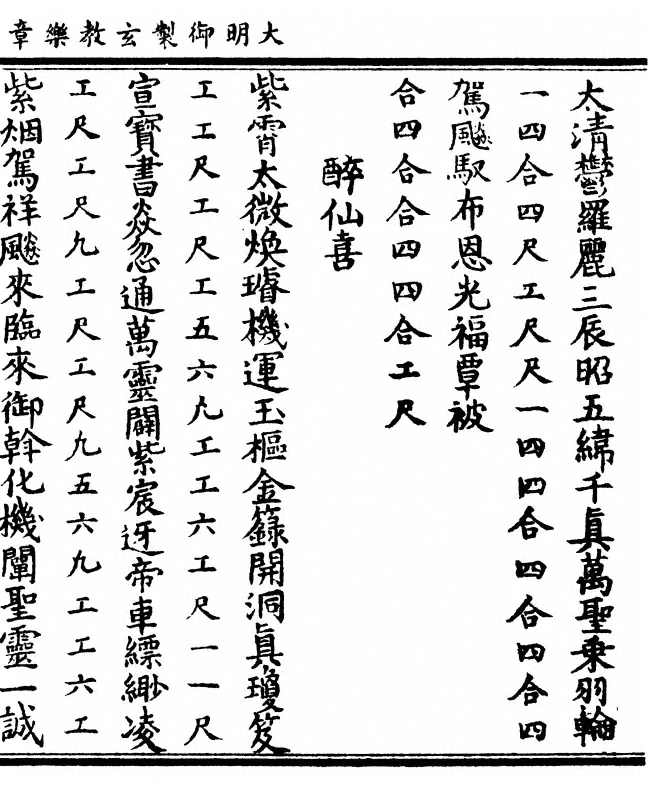 大明御製玄教樂章
太清鬱羅麗三辰昭五緯千眞萬聖乗羽輪
一四合四尺工尺尺一四四合四合四合四
駕飈馭布恩光福覃被
合四合合四四合工尺
醉仙喜
紫霄太微煥璿機運玉樞金籙開洞眞瓊笈
工工尺工尺工五六凡工工六工尺一一尺
宣寶書焱忽通萬靈闢紫宸迓帝車縹緲凌
工尺工尺凡工尺工尺凡五六凡工工六工
紫烟駕祥飈來臨來御斡化機闡聖靈一誠